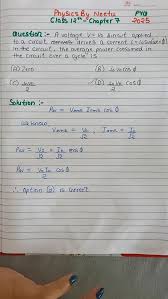 Physics By Neetu
PYQ
Class 12th - Chapter 7
2025
Question :- A voltage V = V₀ sinωt applied
to a circuit drives a current
in the circuit. The average power consumed in
the circuit over a cycle is
(A) Zero
(B) i₀v₀ cos ϕ
(C) i₀v₀/2
(D) i₀v₀/2 cos ϕ
Solution :-
Pav = Vrms Irms cos ϕ
we know,
Vrms = V₀/√2 , Irms = I₀/√2
Pav = V₀/√2 × I₀/√2 cos ϕ
Pav = V₀I₀/2 cos ϕ
∴ Option (D) is correct